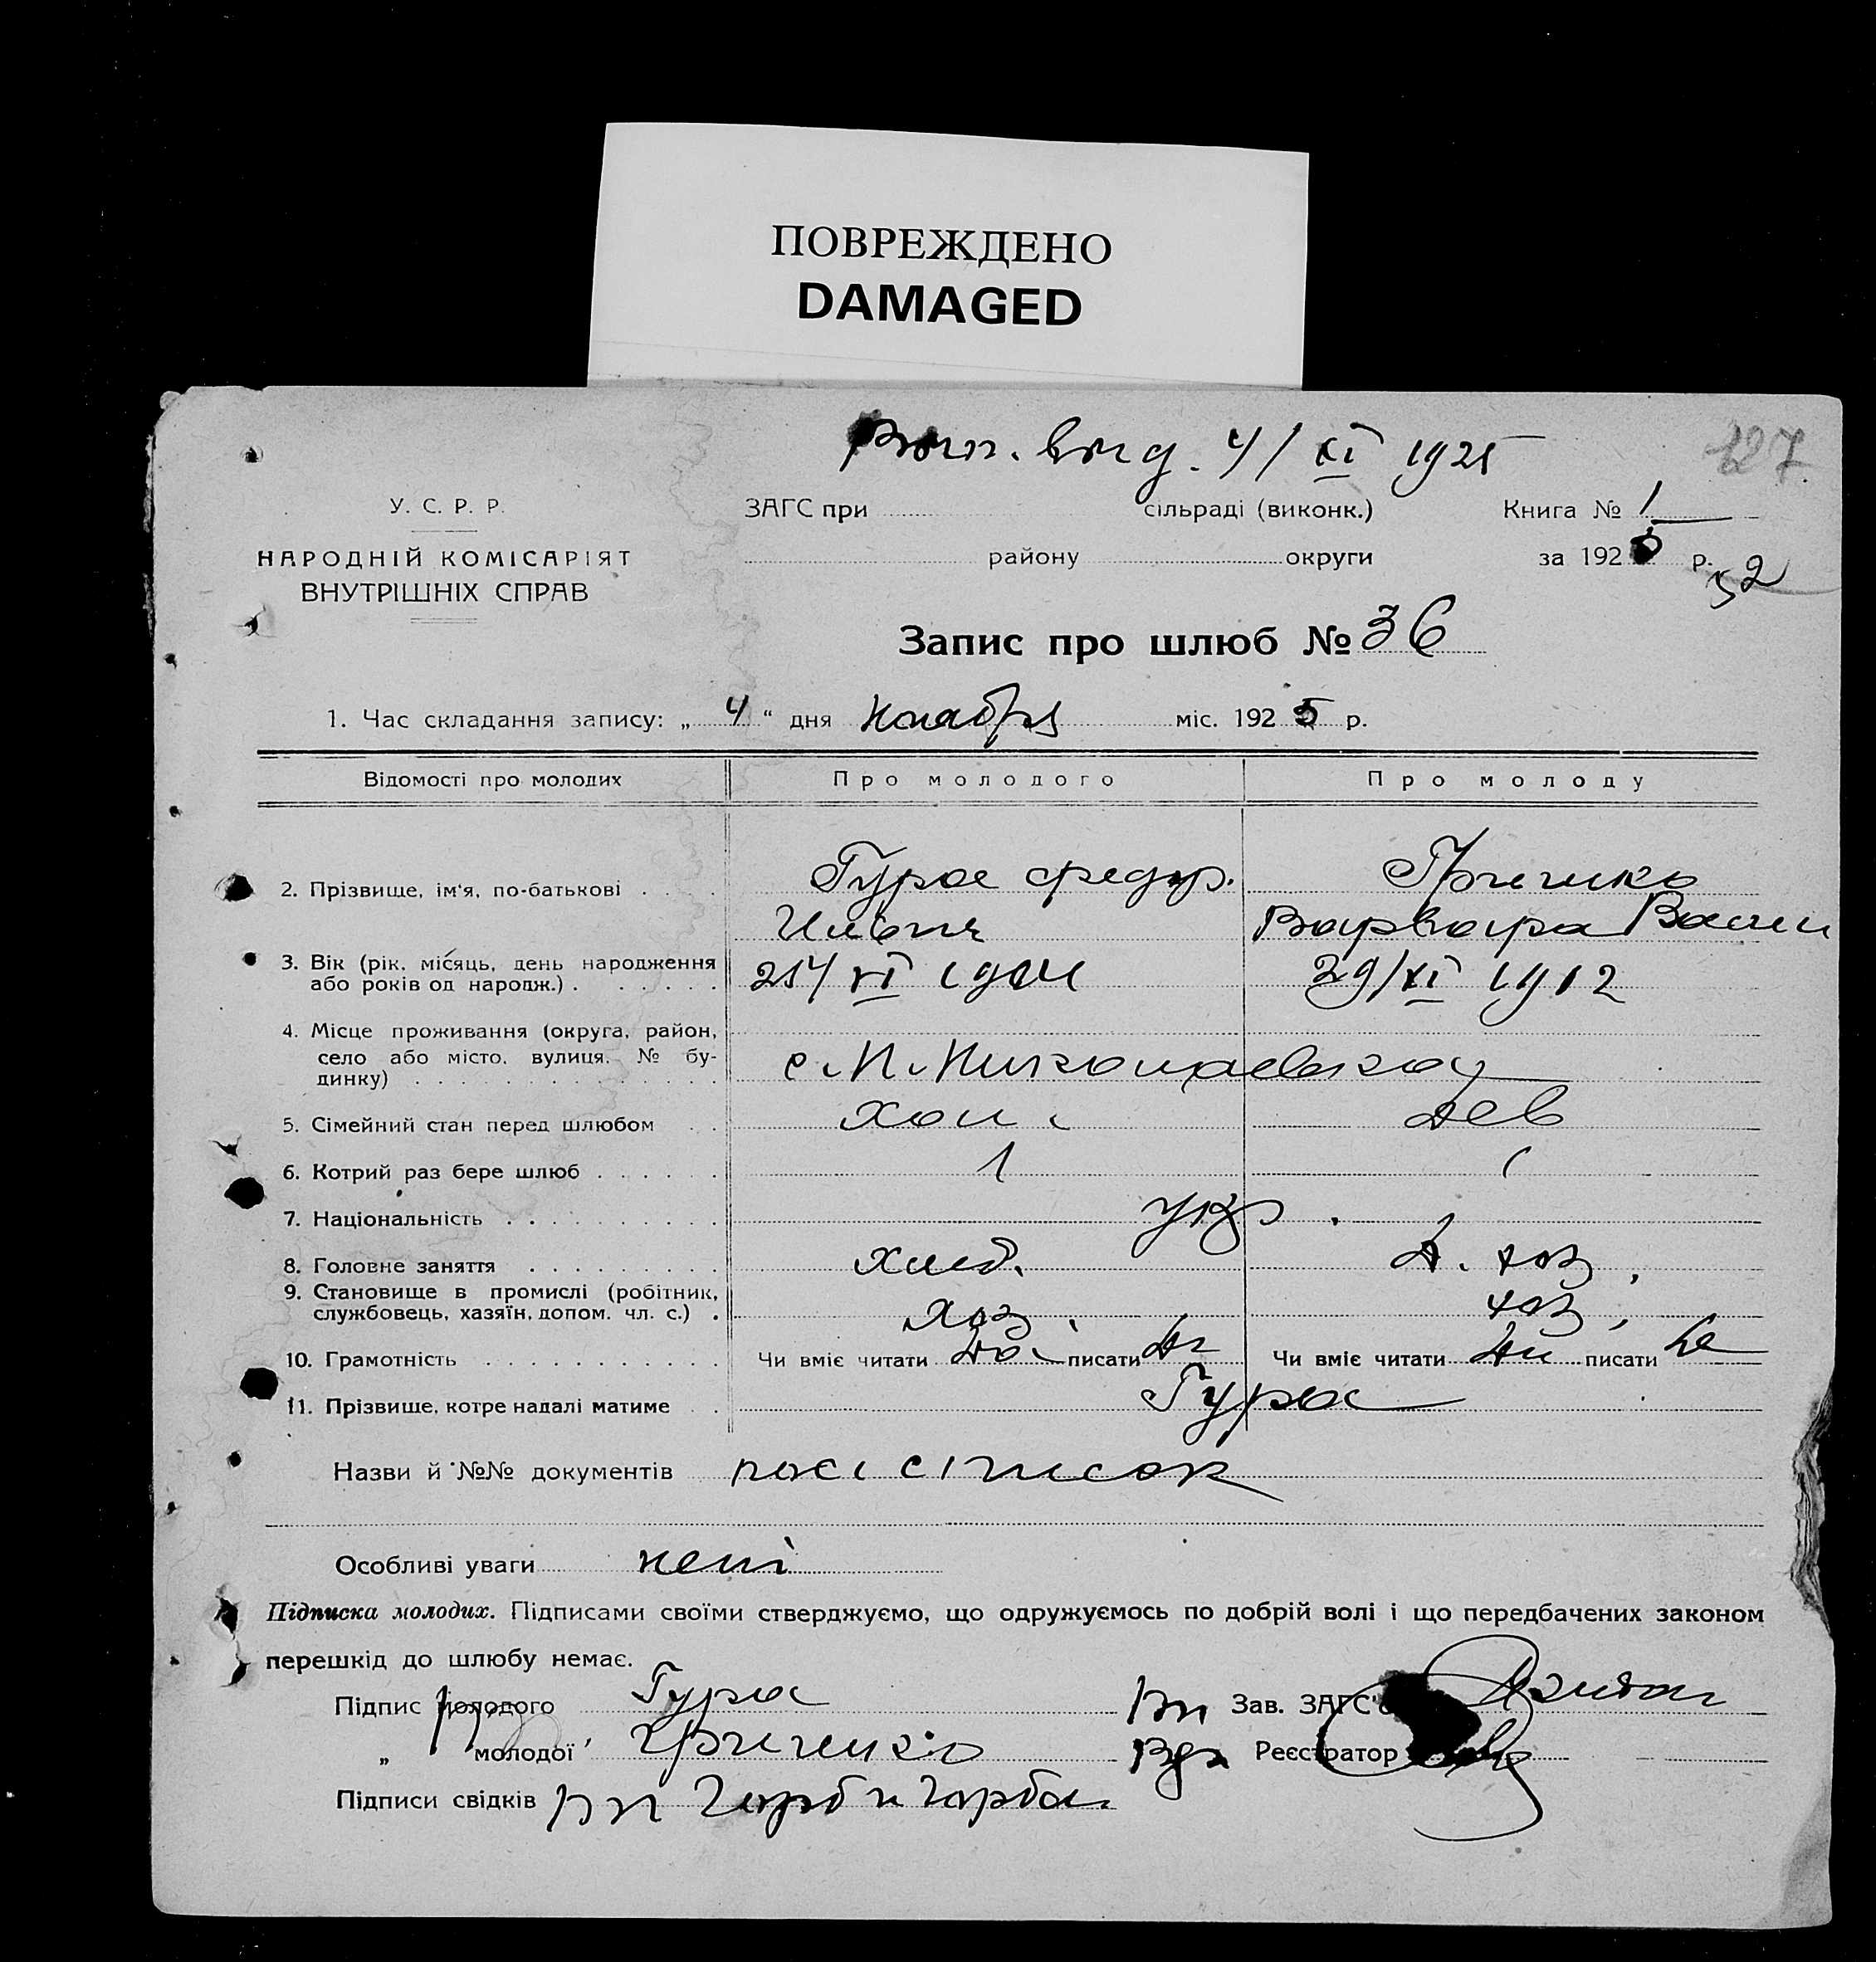 ПОВРЕЖДЕНО
DAMAGED
4/XI 1925
127
У. С. Р. Р.
НАРОДНІЙ КОМІСАРІЯТ
ВНУТРІШНІХ СПРАВ
ЗАГС при сільраді (виконк.)
району округи
Книга № 1
за 1925 р.
52
Запис про шлюб № 36
1. Час складання запису: „ 4 “ дня ноября міс. 1925 р.
Відомості про молодих Про молодого Про молоду
2. Прізвище, ім'я, по-батькові Гура Федор. Гриченко
Варвара Васил
3. Вік (рік, місяць, день народження
або років од народж.) XI 29/XI 1902
4. Місце проживання (округа, район,
село або місто, вулиця, № бу-
динку) с. Н. Николаевка
5. Сімейний стан перед шлюбом хол. дев
6. Котрий раз бере шлюб 1 1
7. Національність укр.
8. Головне заняття хлеб. д. хоз.
9. Становище в промислі (робітник,
службовець, хазяїн, допом. чл. с.) хоз. хоз.
10. Грамотність Чи вміє читати да писати да Чи вміє читати да писати да
11. Прізвище, котре надалі матиме Гура
Назви й №№ документів пос. список
Особливі уваги нет
Підписка молодих. Підписами своїми стверджуємо, що одружуємось по добрій волі і що передбачених законом
перешкід до шлюбу немає.
Підпис молодого Гура
„ молодої Гриченко
Підписи свідків Горб и Горбан
Зав. ЗАГС'
Реєстратор